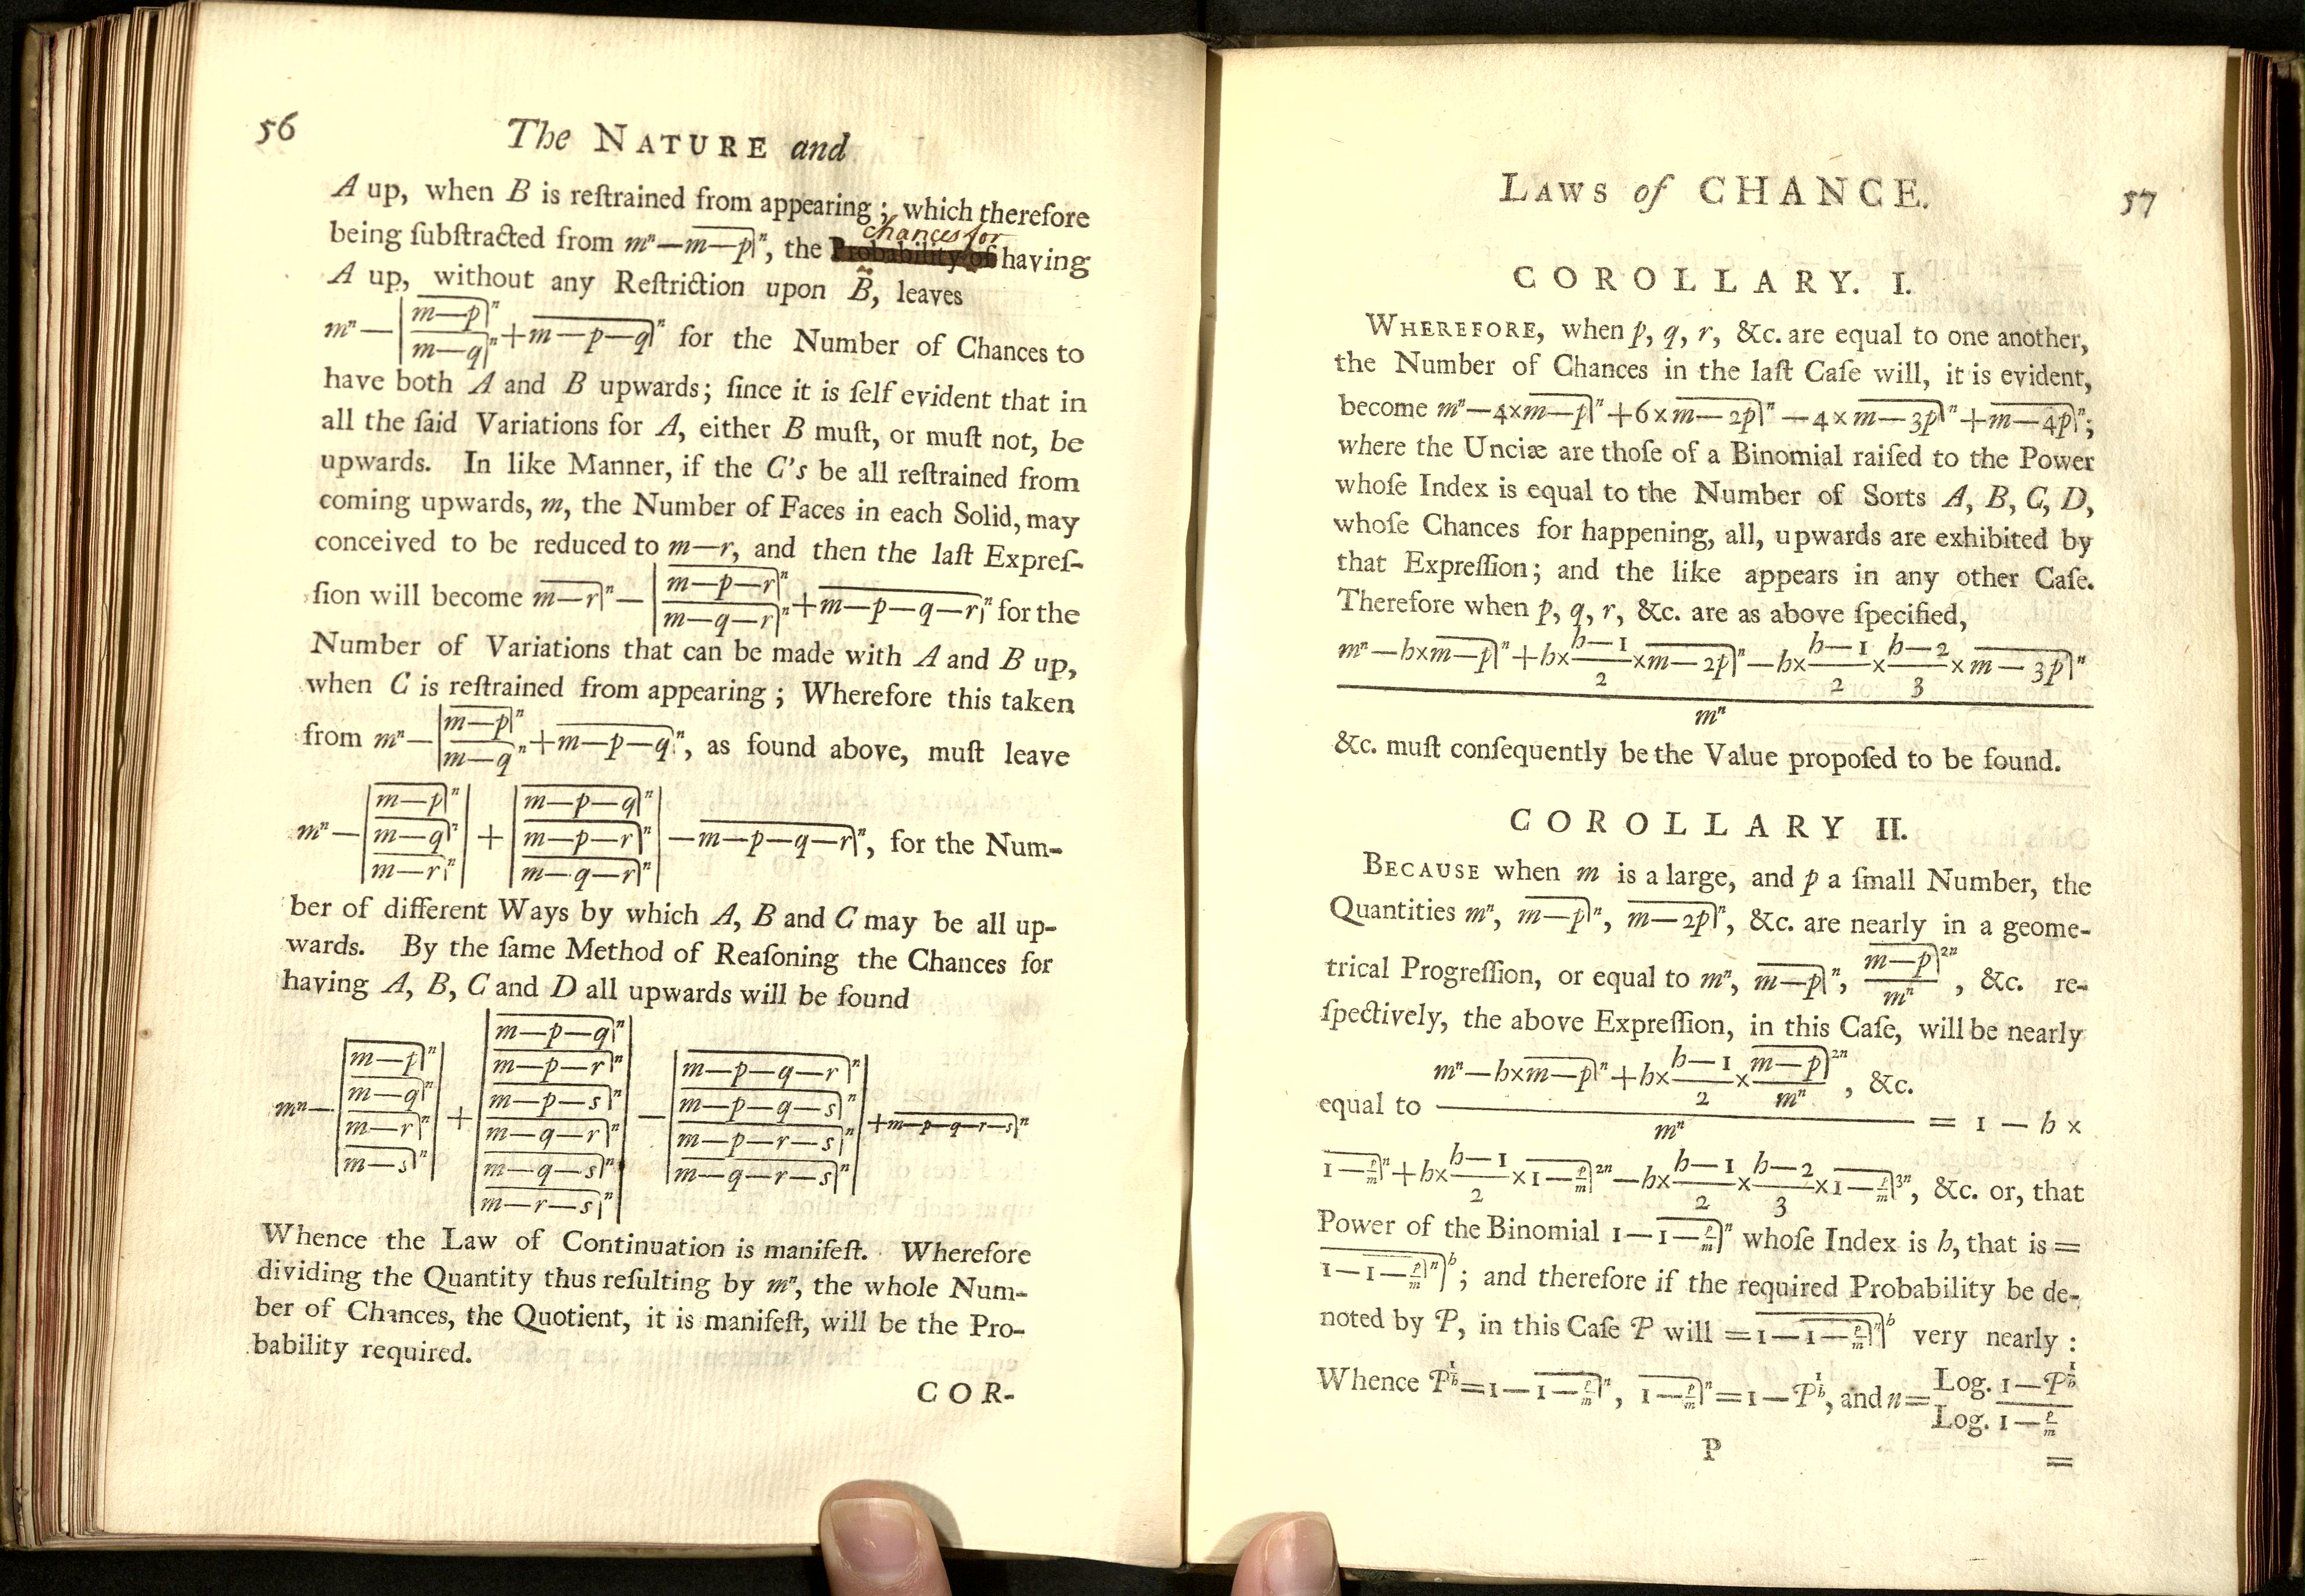 56
The NATURE and
A up, when B is reſtrained from appearing; which therefore
chances for
being ſubſtracted from mⁿ—m—p|ⁿ, the Probability of having
A up, without any Reſtriction upon B, leaves
mⁿ— |m—p|ⁿ m—q|ⁿ +m—p—q|ⁿ for the Number of Chances to
have both A and B upwards; ſince it is ſelf evident that in
all the ſaid Variations for A, either B muſt, or muſt not, be
upwards. In like Manner, if the C's be all reſtrained from
coming upwards, m, the Number of Faces in each Solid, may
conceived to be reduced to m—r, and then the laſt Expreſ-
ſion will become m—r|ⁿ— |m—p—r|ⁿ m—q—r|ⁿ +m—p—q—r|ⁿ for the
Number of Variations that can be made with A and B up,
when C is reſtrained from appearing; Wherefore this taken
from mⁿ— |m—p|ⁿ m—q|ⁿ +m—p—q|ⁿ, as found above, muſt leave
mⁿ— |m—p|ⁿ m—q|ⁿ m—r|ⁿ| + |m—p—q|ⁿ m—p—r|ⁿ m—q—r|ⁿ| —m—p—q—r|ⁿ, for the Num-
ber of different Ways by which A, B and C may be all up-
wards. By the ſame Method of Reaſoning the Chances for
having A, B, C and D all upwards will be found
mⁿ— |m—p|ⁿ m—q|ⁿ m—r|ⁿ m—s|ⁿ| + |m—p—q|ⁿ m—p—r|ⁿ m—p—s|ⁿ m—q—r|ⁿ m—q—s|ⁿ m—r—s|ⁿ| — |m—p—q—r|ⁿ m—p—q—s|ⁿ m—p—r—s|ⁿ m—q—r—s|ⁿ| +m—p—q—r—s|ⁿ
Whence the Law of Continuation is manifeſt. Wherefore
dividing the Quantity thus reſulting by mⁿ, the whole Num-
ber of Chances, the Quotient, it is manifeſt, will be the Pro-
bability required.
COR-
LAWS of CHANCE.
57
COROLLARY. I.
WHEREFORE, when p, q, r, &c. are equal to one another,
the Number of Chances in the laſt Caſe will, it is evident,
become mⁿ—4×m—p|ⁿ+6×m—2p|ⁿ—4×m—3p|ⁿ+m—4p|ⁿ;
where the Unciæ are thoſe of a Binomial raiſed to the Power
whoſe Index is equal to the Number of Sorts A, B, C, D,
whoſe Chances for happening, all, upwards are exhibited by
that Expreſſion; and the like appears in any other Caſe.
Therefore when p, q, r, &c. are as above ſpecified,
mⁿ—h×m—p|ⁿ+h×h—1/2×m—2p|ⁿ—h×h—1/2×h—2/3×m—3p|ⁿ
mⁿ
&c. muſt conſequently be the Value propoſed to be found.
COROLLARY II.
BECAUSE when m is a large, and p a ſmall Number, the
Quantities mⁿ, m—p|ⁿ, m—2p|ⁿ, &c. are nearly in a geome-
trical Progreſſion, or equal to mⁿ, m—p|ⁿ, m—p|²ⁿ/mⁿ, &c. re-
ſpectively, the above Expreſſion, in this Caſe, will be nearly
mⁿ—h×m—p|ⁿ+h×h—1/2×m—p|²ⁿ/mⁿ, &c.
equal to / mⁿ = 1 — h ×
1—p/m|ⁿ+h×h—1/2×1—p/m|²ⁿ—h×h—1/2×h—2/3×1—p/m|³ⁿ, &c. or, that
Power of the Binomial 1—1—p/m|ⁿ whoſe Index is h, that is =
1—1—p/m|ⁿ|ʰ; and therefore if the required Probability be de-
noted by P, in this Caſe P will =1—1—p/m|ⁿ|ʰ very nearly :
Whence P^1/h=1—1—p/m|ⁿ, 1—p/m|ⁿ=1—P^1/h, and n= Log. 1—P^1/h / Log. 1—p/m
P
=